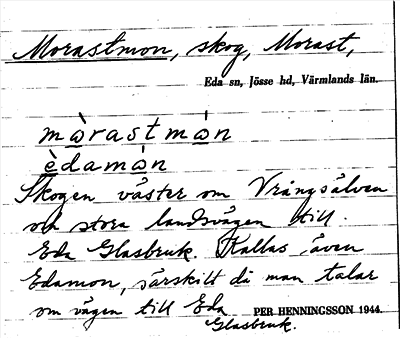 Morastmon, skog, Morast,
Eda sn, Jösse hd, Värmlands län.
mòrastmón
èdamòn
Skogen väster om Vrångsälven
och stora landsvägen till
Eda Glasbruk. Kallas även
Edamon, särskilt då man talar
om vägen till Eda
Glasbruk.
PER HENNINGSSON 1944.